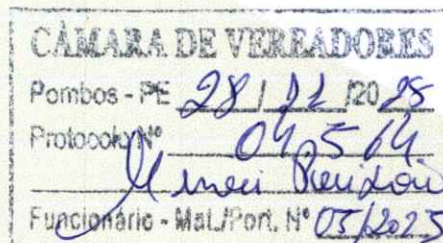 CÂMARA DE VEREADORES
Pombos - PE 28 / 11 /20 25
Protocolo Nº 04564
Funcionário - Mat./Port. Nº 05/2025